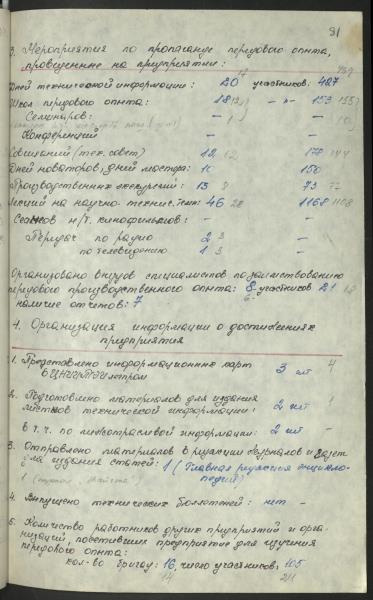 91
3. Мероприятия по пропаганде передового опыта,
проведенные на предприятии:
Дней технической информации: 20 участников: 427
Школ передового опыта: 18 -"- 153
Семинаров: - -
Конференций - -
Совещаний (тех. совет) 12 177
Дней новаторов, дней мастера: 10 150
Производственных экскурсий: 13 73
Лекций на научно-технич. темы: 46 1168
Сеансов н/т. кинофильмов: - -
Передач по радио 2 3 -
по телевидению 1 3 -
Организовано выездов специалистов по заимствованию
передового производственного опыта: 8 участников 21
наличие отчетов: 7
4. Организация информации о достижениях
предприятия
1. Представлено информационных карт
3 шт 4
2. Подготовлено материалов для издания
листков технической информации: 2 шт
в т.ч. по межотраслевой информации: 2 шт -
3. Отправлено материалов в редакции журналов и газет
для издания статей: 1 (Главная редакция энцикло-
педий)
4. Выпущено технических бюллетеней: нет -
5. Количество работников других предприятий и орга-
низаций, посетивших предприятие для изучения
передового опыта:
кол-во бригад: 16, число участников: 105
14 211